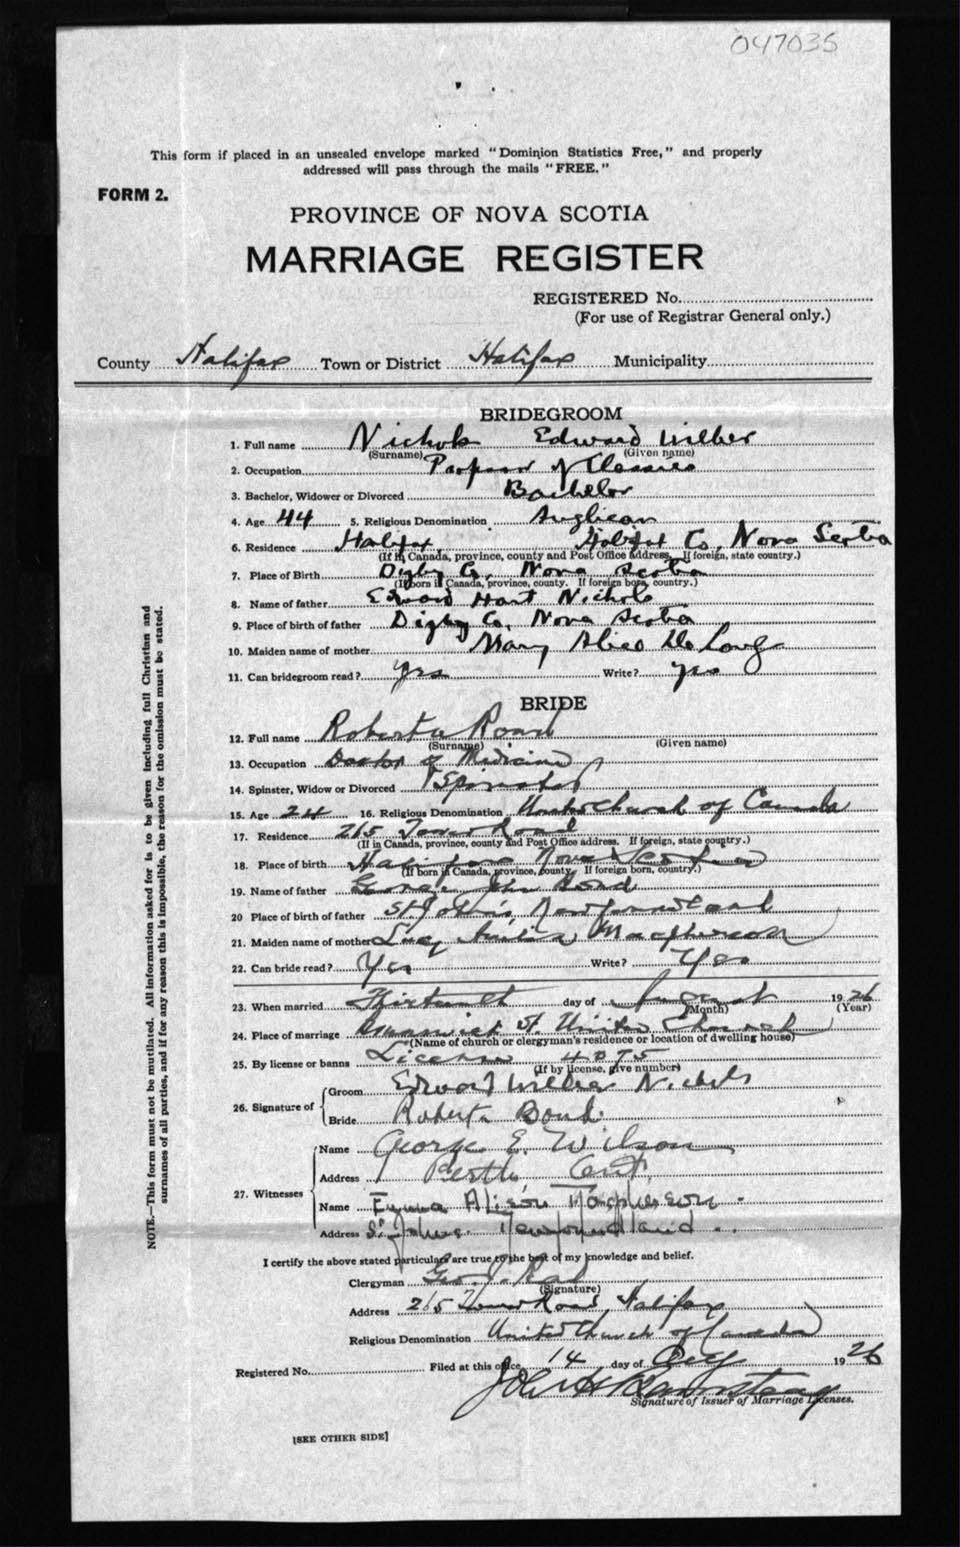 047035
This form if placed in an unsealed envelope marked "Dominion Statistics Free," and properly
addressed will pass through the mails "FREE."
FORM 2.
PROVINCE OF NOVA SCOTIA
MARRIAGE REGISTER
REGISTERED No.
(For use of Registrar General only.)
County Halifax Town or District Halifax Municipality
BRIDEGROOM
1. Full name Nichols Edward Wilber
(Surname) (Given name)
2. Occupation Professor of Classics
3. Bachelor, Widower or Divorced Bachelor
4. Age 44 5. Religious Denomination Anglican
6. Residence Halifax, Halifax Co, Nova Scotia
(If in Canada, province, county and Post Office address. If foreign, state country.)
7. Place of Birth Digby Co, Nova Scotia
(If born in Canada, province, county. If foreign born, country.)
8. Name of father Edward Hart Nichols
9. Place of birth of father Digby Co, Nova Scotia
10. Maiden name of mother Mary Alice De Long
11. Can bridegroom read? Yes Write? yes
BRIDE
12. Full name Roberta Bond
(Surname) (Given name)
13. Occupation Doctor of Medicine
14. Spinster, Widow or Divorced Spinster
15. Age 24 16. Religious Denomination United Church of Canada
17. Residence 265 Tower Road
(If in Canada, province, county and Post Office address. If foreign, state country.)
18. Place of birth Halifax Nova Scotia
(If born in Canada, province, county. If foreign born, country.)
19. Name of father George John Bond
20 Place of birth of father St. John's, Newfoundland
21. Maiden name of mother Lucy Macpherson
22. Can bride read? Yes Write? Yes
23. When married Thirteenth day of August 1926
(Month) (Year)
24. Place of marriage Brunswick St. United Church
(Name of church or clergyman's residence or location of dwelling house)
25. By license or banns License 4075
(If by license, give number)
26. Signature of
Groom Edward Wilber Nichols
Bride Roberta Bond.
27. Witnesses
Name George E. Wilson
Address Perth Ont.
Name Emma Alison Macpherson
Address St. Johns Newfoundland
I certify the above stated particulars are true to the best of my knowledge and belief.
Clergyman Geo. J. Bond
(Signature)
Address 265 Tower Road, Halifax
Religious Denomination United Church of Canada
Registered No. Filed at this office 14 day of Aug 1926
John H
Signature of Issuer of Marriage Licenses.
[SEE OTHER SIDE]
NOTE.—This form must not be mutilated. All information asked for is to be given including full Christian and
surnames of all parties, and if for any reason this is impossible, the reason for the omission must be stated.